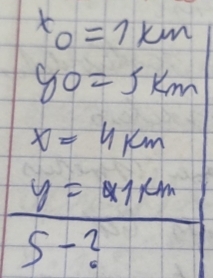 x₀ = 1 km
y0 = 5 km
x = 4 km
y = 1 km
S - ?